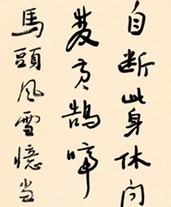 自断此身休问
鵠啼
馬頭風雪憶当